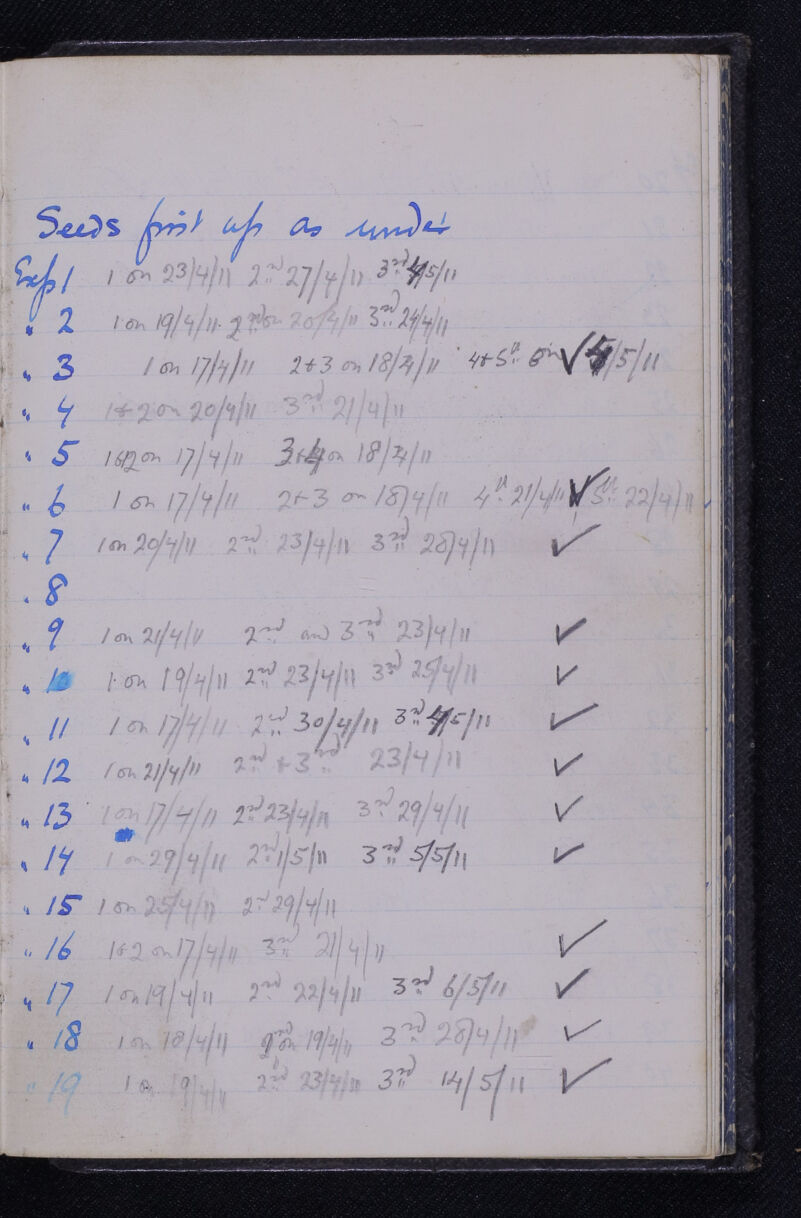 Seeds first up as under
Exp 1 1 on 23/4/11 2nd 27/4/11 3rd 4/5/11
" 2 1 on 19/4/11 2nd on 20/4/11 3rd 24/4/11
" 3 1 on 17/4/11 2+3 on 18/4/11 4+5th on ✓ /5/11
" 4 1+2 on 20/4/11 3rd 21/4/11
" 5 1+2 on 17/4/11 3+4 on 18/4/11
" 6 1 on 17/4/11 2+3 on 18/4/11 4th 21/4/11 ✓ 5th 22/4/11
" 7 1 on 20/4/11 2nd 23/4/11 3rd 28/4/11 ✓
" 8
" 9 1 on 21/4/11 2nd and 3rd 23/4/11 ✓
" 10 1 on 19/4/11 2nd 23/4/11 3rd 25/4/11 ✓
" 11 1 on 17/4/11 2nd 30/4/11 3rd 4/5/11 ✓
" 12 1 on 21/4/11 2nd + 3rd 23/4/11 ✓
" 13 1 on 17/4/11 2nd 23/4/11 3rd 29/4/11 ✓
" 14 1 on 29/4/11 2nd 1/5/11 3rd 5/5/11 ✓
" 15 1 on 25/4/11 2nd 29/4/11
" 16 1+2 on 17/4/11 3rd 21/4/11 ✓
" 17 1 on 19/4/11 2nd 22/4/11 3rd 6/5/11 ✓
" 18 1 on 18/4/11 2nd on 19/4/11 3rd 28/4/11 ✓
" 19 1 on 19/4/11 2nd 23/4/11 3rd 14/5/11 ✓